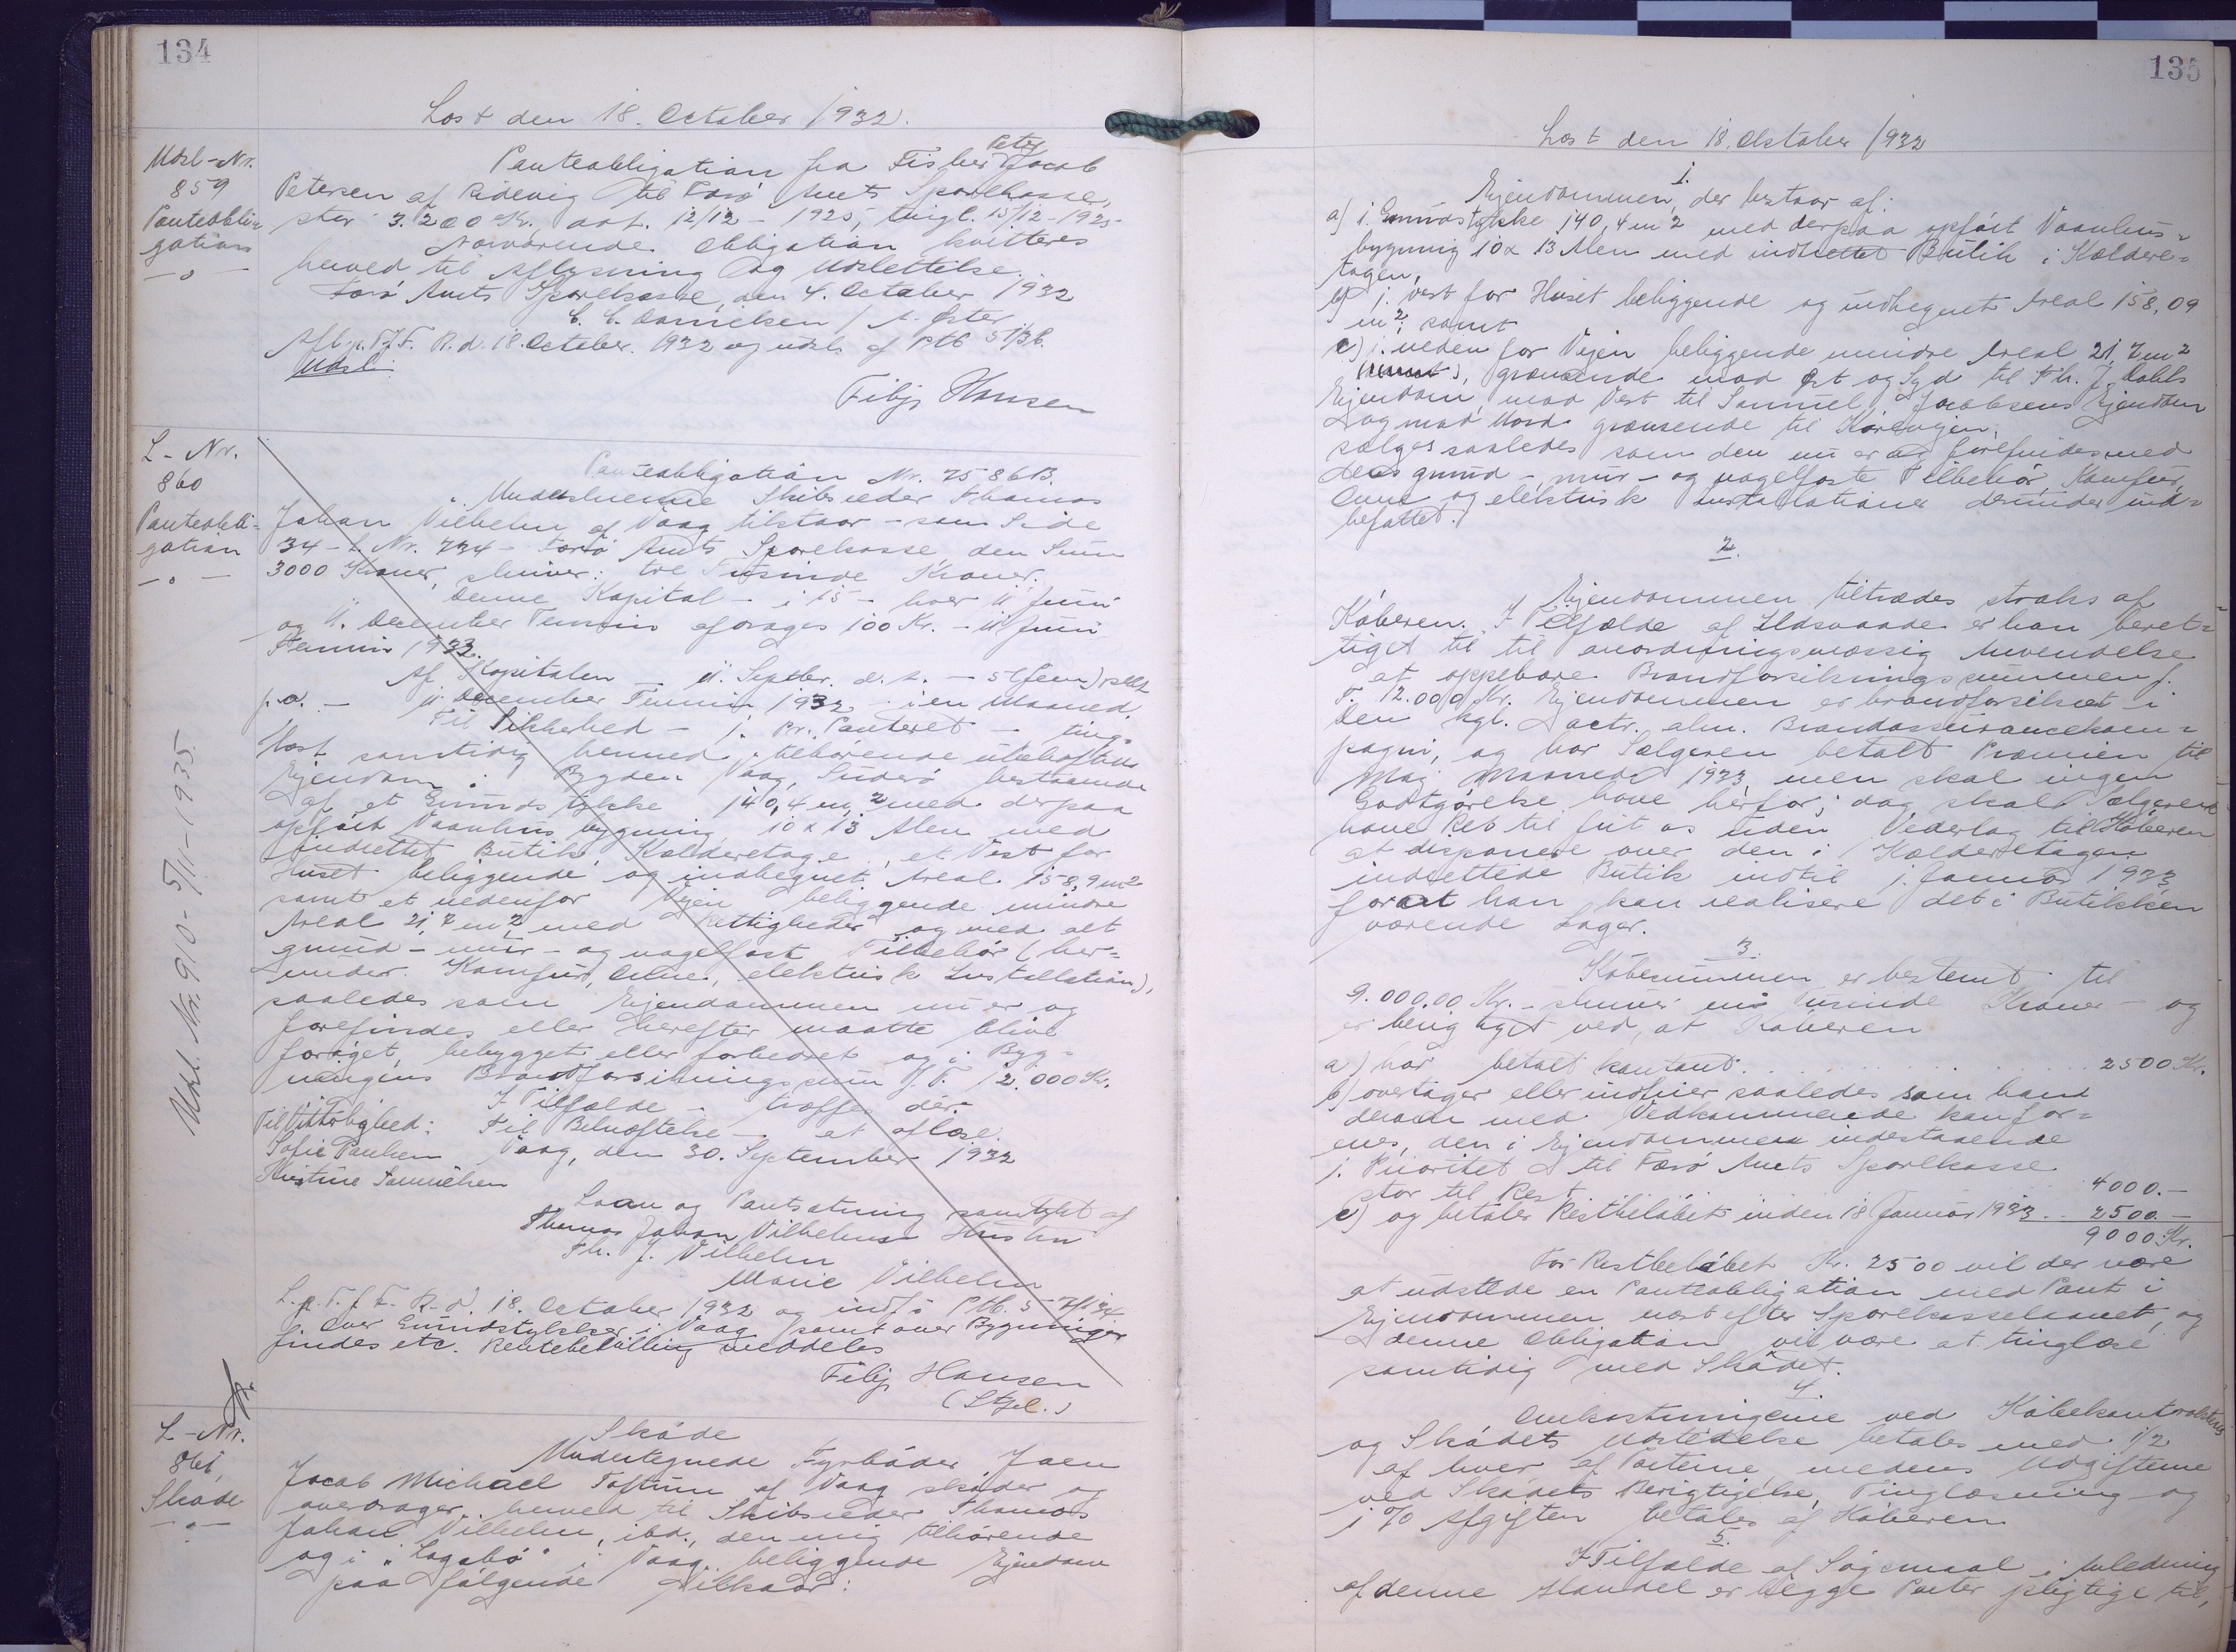 134
Læst den 18. October 1932.
Udsl-Nr.
859
Panteobli-
gation
Panteobligation fra Fisker Peter Jacob
Petersen af Ridevig til Færø Amts Sparekasse,
stor 3.200 Kr, dat. 12/12 - 1925, tingl. 15/12 - 1925
Nærværende Obligation kvitteres
herved til Aflysning og Udslettelse.
Færø Amts Sparekasse, den 4. October 1932
C. C. Danielsen / A. Øster
Afl. p. T. f. F. R. d. 18. October 1932 og udsl. af Ptb
Udsl:
Filip Hansen
L - Nr.
860
Panteobli-
gation
Panteobligation Nr. 7586 B.
Underskrevne Skibsreder Thomas
Johan Vilhelm af Vaag tilstaar - som Side
34 - L. Nr. 734 - Færø Amts Sparekasse den Sum
3000 Kroner, skriver: tre Tusinde Kroner.
Denne Kapital - i 15 - hver 11 Juni
og 11. December Termin afdrages 100 Kr. - 11 Juni
Termin 1933.
Af Kapitalen - 11. Septbr. d. A. - 5 (fem) pCt
p. a. - 11 December Termin 1932 - i en Maaned.
Til Sikkerhed - 1. Pr. Panteret - ting-
læst samtidig hermed, tilhørende ubehæftede
Ejendom i Bygden Vaag, Suderø bestaaende
af et Grundstykke 140,4 m2 med derpaa
opført Vaanhusbygning, 10 x 13 Alen med
indrettet Butik, Kælderetage, et Vest for
Huset beliggende og indhegnet Areal 158,9 m2
samt et nedenfor Vejen beliggende mindre
Areal 21,7 m2, med Rettigheder og med alt
grund - mur - og nagelfast Tilbehør (her-
under Komfur, Ovne, elektrisk Installation),
saaledes som Ejendommen nu er og
forefindes eller herefter maatte blive
forøget, bebygget eller forbedret og i Byg-
ningens Brandforsikringssum p. T. 12.000 Kr.
I Tilfælde - træffes dér.
Til Vitterlighed: Til Bekræftelse - at aflæse.
Sofie Poulsen Vaag, den 30. September 1932
Kristine Samuelsen
Laan og Pantsætning samtykt af
Thomas Johan Vilhelms Hustru
Th. J. Vilhelm
Marie Vilhelm
L. p. T. f. F. R. d. 18. October 1932 og indf. i Ptb. 5
Over Grundstykker i Vaag samt over Bygninger
findes etc. Rentebevilling meddeles
Filip Hansen
(Stpl.)
Udsl. Nr. 910 - 5/11 - 1935
L - Nr.
861,
Skøde
Skøde
Undertegnede Fyrbøder Joen
Jacob Michael Toftum af Vaag skøder og
overdrager herved til Skibsreder Thomas
Johan Vilhelm, ibd., den mig tilhørende
og i "Løgabø" i Vaag beliggende Ejendom
paa følgende Vilkaar:
135
Læst den 18. Oktober 1932
1.
Ejendommen, der bestaar af:
a) 1. Grundstykke 140,4 m2 med derpaa opført Vaanhus-
bygning 10 x 13 Alen med indrettet Butik i Kældere-
tagen,
b) 1. Vest for Huset beliggende og indhegnet Areal 158,09
m2, samt
c) 1. neden for Vejen beliggende mindre Areal 21,7 m2
grænsende mod Øst og Syd til Th. J. Dahls
Ejendom, mod Vest til Samuel Jacobsens Ejendom
og mod Nord grænsende til Kørevejen,
sælges saaledes som den nu er og forefindes med
dens grund - mur - og nagelfaste Tilbehør, Komfur,
Ovne og elektrisk Installationer derunder ind-
befattet.
2.
Ejendommen tiltrædes straks af
Køberen. I Tilfælde af Ildsvaade er han beret-
tiget til til anordningsmæssig Anvendelse
at oppebære Brandforsikringssummen p.
T. 12.000 Kr. Ejendommen er brandforsikret i
den kgl. octr. alm. Brandassurancekom-
pagni, og har Sælgeren betalt Præmien til
Maj Maaned 1933, men skal ingen
Godtgørelse have herfor; dog skal Sælgeren
have Ret til frit og uden Vederlag til Køberen
at disponere over den i Kælderetagen
indrettede Butik indtil 1. Januar 1933
for at han kan realisere det i Butikken
værende Lager.
3.
Købesummen er bestemt til
9.000.00 Kr. - skriver ni Tusinde Kroner - og
er berigtiget ved, at Køberen
a) har betalt kontant . . . . . . . . 2500 Kr.
b) overtager eller indfrier saaledes som han
derom med Vedkommende kan for-
enes, den i Ejendommen indestaaende
1. Prioritet til Færø Amts Sparekasse
stor til Rest 4000.-
c) og betaler Restbeløbet inden 18 Januar 1933 .. 2500.-
9000 Kr.
For Restbeløbet Kr. 2500 vil der være
at udstede en Panteobligation med Pant i
Ejendommen næst efter Sparekasselaanet, og
denne Obligation vil være at tinglæse
samtidig med Skødet.
4.
Omkostningerne ved Købekontraktens
og Skødets Udstedelse betales med 1/2
af hver af Parterne, medens Udgifterne
ved Skødets Berigtigelse, Tinglæsning og
1 % Afgiften betales af Køberen
5.
I Tilfælde af Søgsmaal i Anledning
af denne Handel er begge Parter pligtige til,